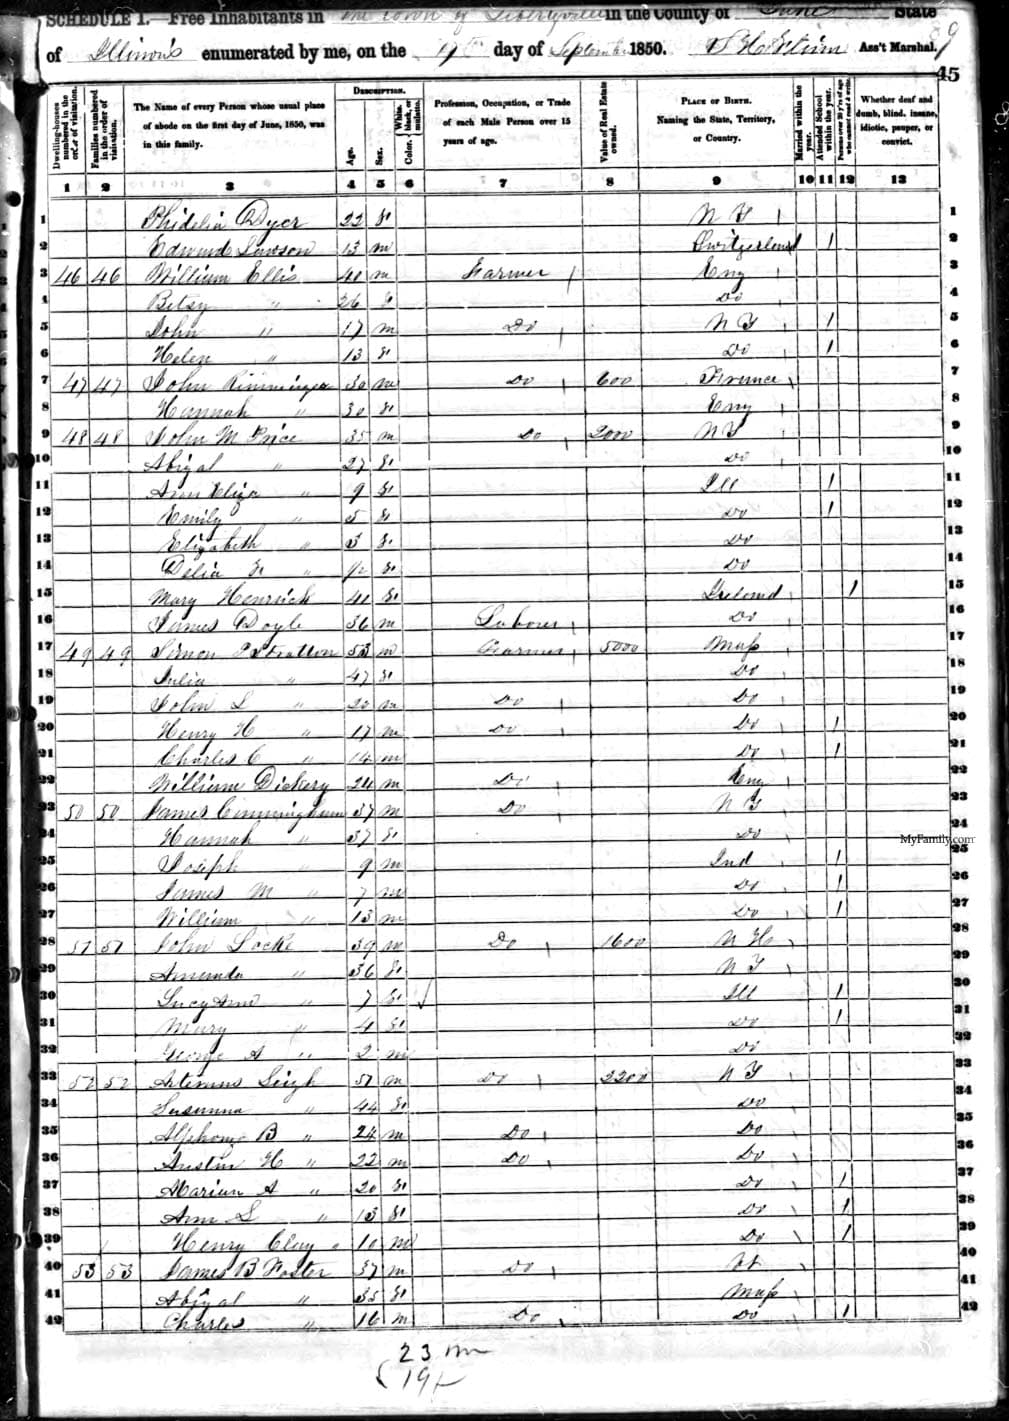 SCHEDULE 1. Free Inhabitants in the town of Libertyville in the County of Lake State
of Illinois enumerated by me, on the day of September 1850. Ass't Marshal. 89
45
Dwelling-houses numbered in the order of visitation.
Families numbered in the order of visitation.
The Name of every Person whose usual place of abode on the first day of June, 1850, was in this family.
DESCRIPTION.
Age.
Sex.
Color, White, black, or mulatto.
Profession, Occupation, or Trade of each Male Person over 15 years of age.
Value of Real Estate owned.
PLACE OF BIRTH. Naming the State, Territory, or Country.
Married within the year.
Attended School within the year.
Persons over 20 y'rs of age who cannot read & write.
Whether deaf and dumb, blind, insane, idiotic, pauper, or convict.
1 2 3 4 5 6 7 8 9 10 11 12 13
1 Phidelia Dyer 22 f N Y 1
2 Edmund Lawson 13 m Switzerland / 2
3 46 46 William Ellis 41 m Farmer Eng 3
4 Betsy " 26 f Do 4
5 John " 17 m Do N Y / 5
6 Helen " 13 f Do / 6
7 47 47 John 30 m Do 600 France 7
8 Hannah " 30 f Eng 8
9 48 48 John M Price 35 m Do 2000 N Y 9
10 Abigal " 27 f Do 10
11 Ann Eliza " 9 f Ill / 11
12 Emily " 5 f Do / 12
13 Elizabeth " 3 f Do 13
14 Delia " f Do 14
15 Mary 41 f Ireland / 15
16 James Doyle 36 m Labour Do 16
17 49 49 Simon P Stratton 53 m Farmer 5000 Mass 17
18 Julia " 47 f Do 18
19 John L " 20 m Do Do 19
20 Henry H " 17 m Do Do / 20
21 Charles C " 14 m Do / 21
22 William Dickery 24 m Do Eng 22
23 50 50 James Cunningham 37 m Do N Y 23
24 Hannah " 37 f Do 24
25 Joseph " 9 m Ind / 25
26 James M " 7 m Do / 26
27 William " 13 m Do / 27
28 51 51 John Locke 39 m Do 1600 N H 28
29 Amanda " 36 f N Y 29
30 Lucy Ann " 7 f √ Ill / 30
31 Mary " 4 f Do / 31
32 George A " 2 m Do 32
33 52 52 Artemus Leigh 51 m Do 2200 N Y 33
34 Susanna " 44 f Do 34
35 Alphonzo B " 24 m Do Do 35
36 Austin H " 22 m Do Do 36
37 Marian A " 20 f Do / 37
38 Ann L " 13 f Do / 38
39 Henry Clay " 10 m Do / 39
40 53 53 James B Foster 37 m Do Vt 40
41 Abigal " 35 f Mass 41
42 Charles " 16 m Do Do / 42
MyFamily.com
23 m
19 f